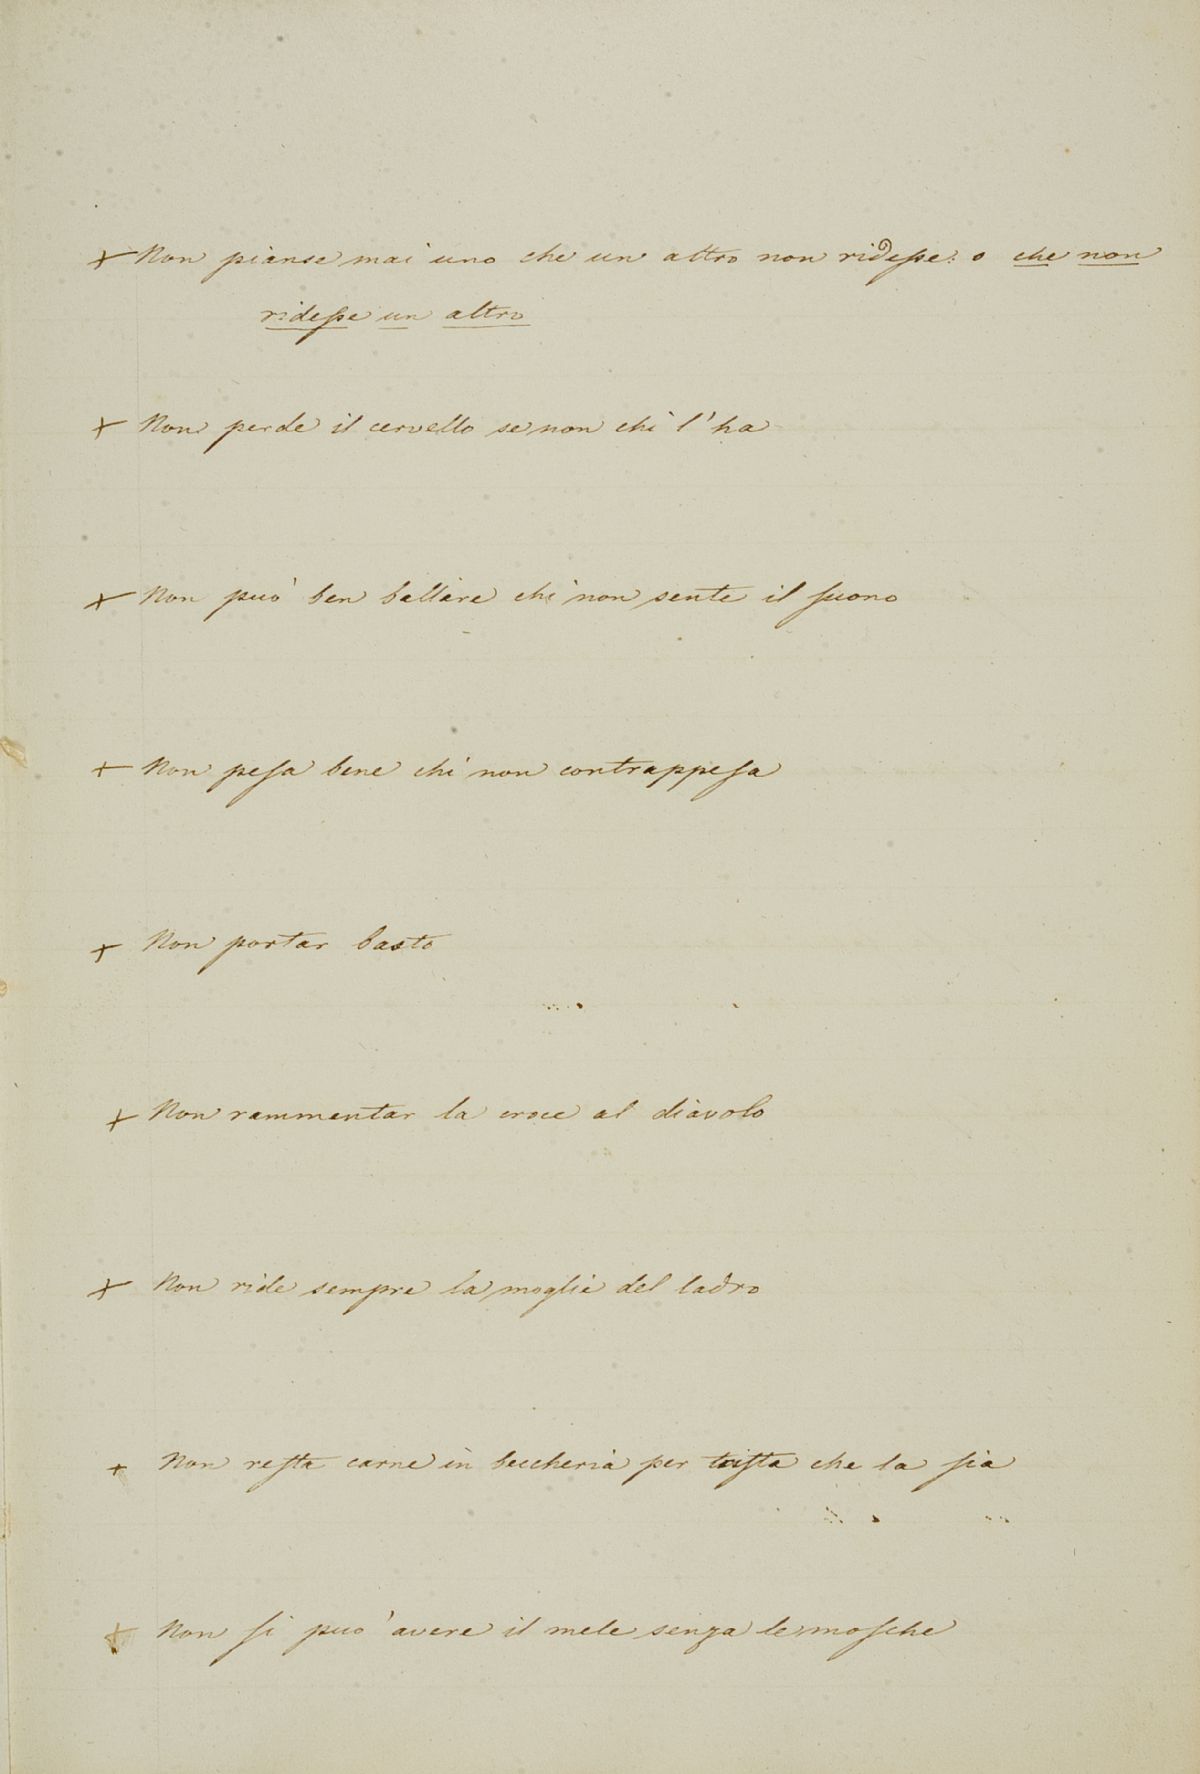 + Non pianse mai uno che un altro non ridesse: o che non
ridesse un altro
+ Non perde il cervello se non chi l'ha
+ Non può ben ballare chi non sente il suono
+ Non pesa bene chi non contrappesa
+ Non portar basto
+ Non rammentar la croce al diavolo
+ Non ride sempre la moglie del ladro
+ Non resta carne in beccheria per trista che la sia
+ Non si può avere il mele senza le mosche